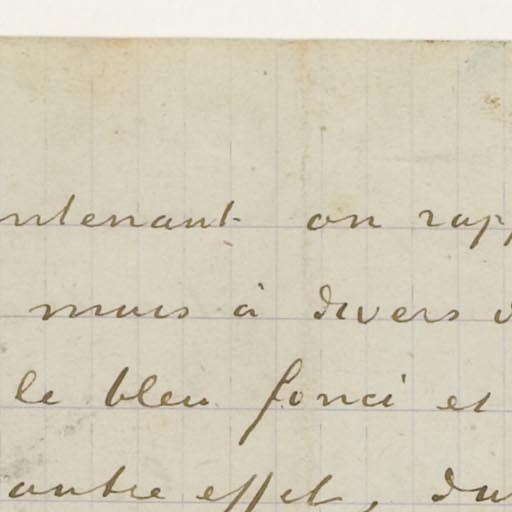 ntenant on rapp
mais à divers
le bleu foncé et
autre effet, du